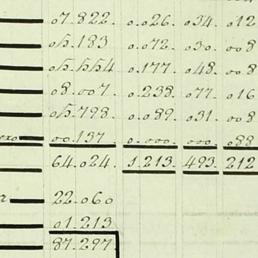 07.822. 0.026. 034. 012
05.183 0.072. 030. 008
05.554 0.177. 048. 008
08.007. 0.238. 077. 016
05.798. 0.089. 031. 008
exo 00.137 0.000. 000. 088
64.024. 1.213. 493. 212
22.060
01.213
87.297.